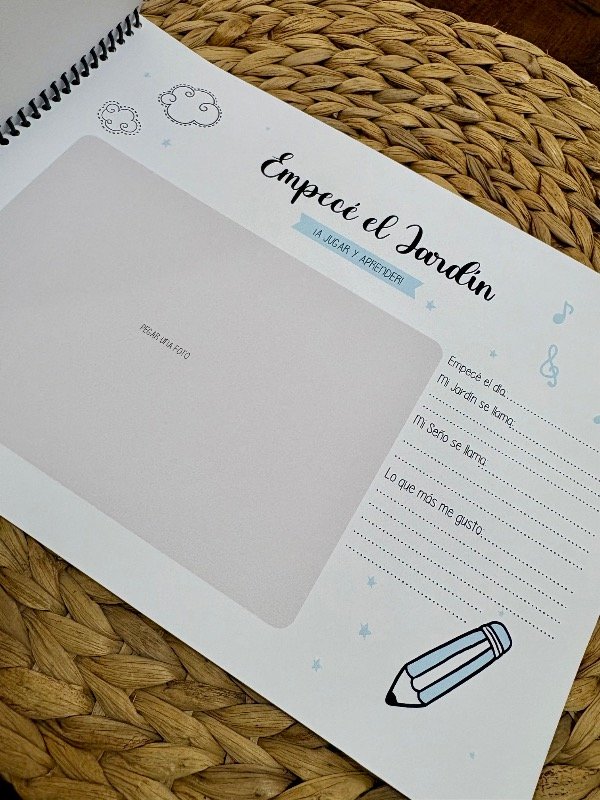 Empecé el Jardín
¡A JUGAR Y APRENDER!
PEGAR UNA FOTO
Empecé el día
Mi Jardín se llama
Mi Seño se llama
Lo que más me gusto